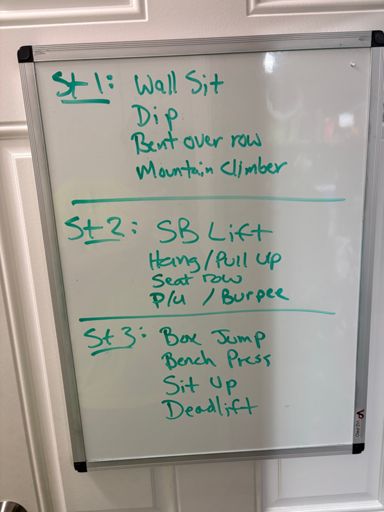 St 1: Wall Sit
Dip
Bent over row
Mountain Climber
St 2: SB Lift
Hang/Pull up
Seat row
P/u / Burpee
St 3: Box Jump
Bench Press
Sit Up
Deadlift